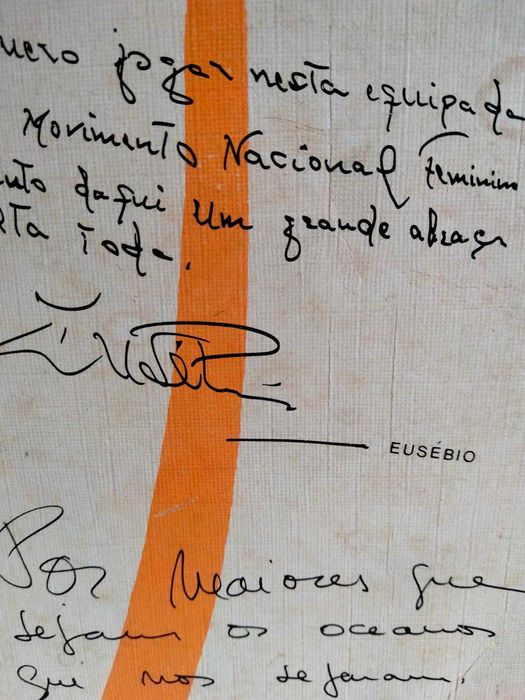 uero jogar nesta equipa da
Movimento Nacional Feminino
nto daqui um grande abraço
ta toda.
EUSÉBIO
Por maiores que
sejam os oceanos
que nos separam,